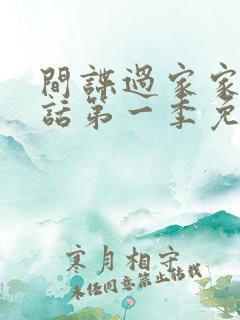 間諜過家家
話第一季免
寒月相守
未经同意禁止转载